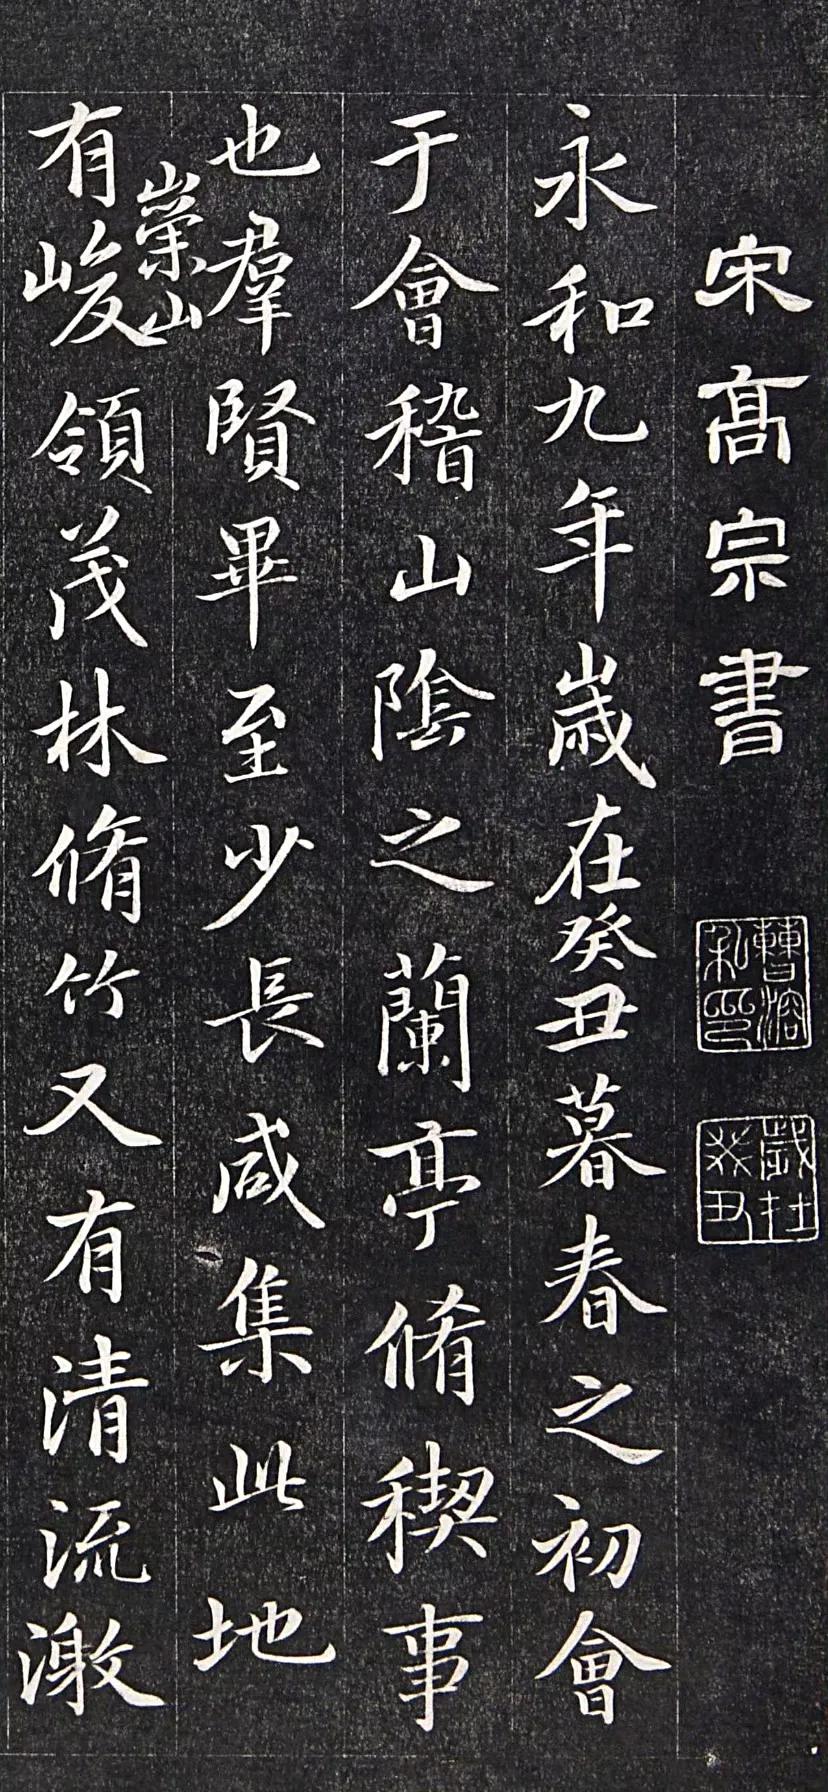 宋高宗書
曹溶私印
歲在癸丑
永和九年歲在癸丑暮春之初會
于會稽山陰之蘭亭脩稧事
也羣賢畢至少長咸集此地
崇山
有峻領茂林脩竹又有清流激